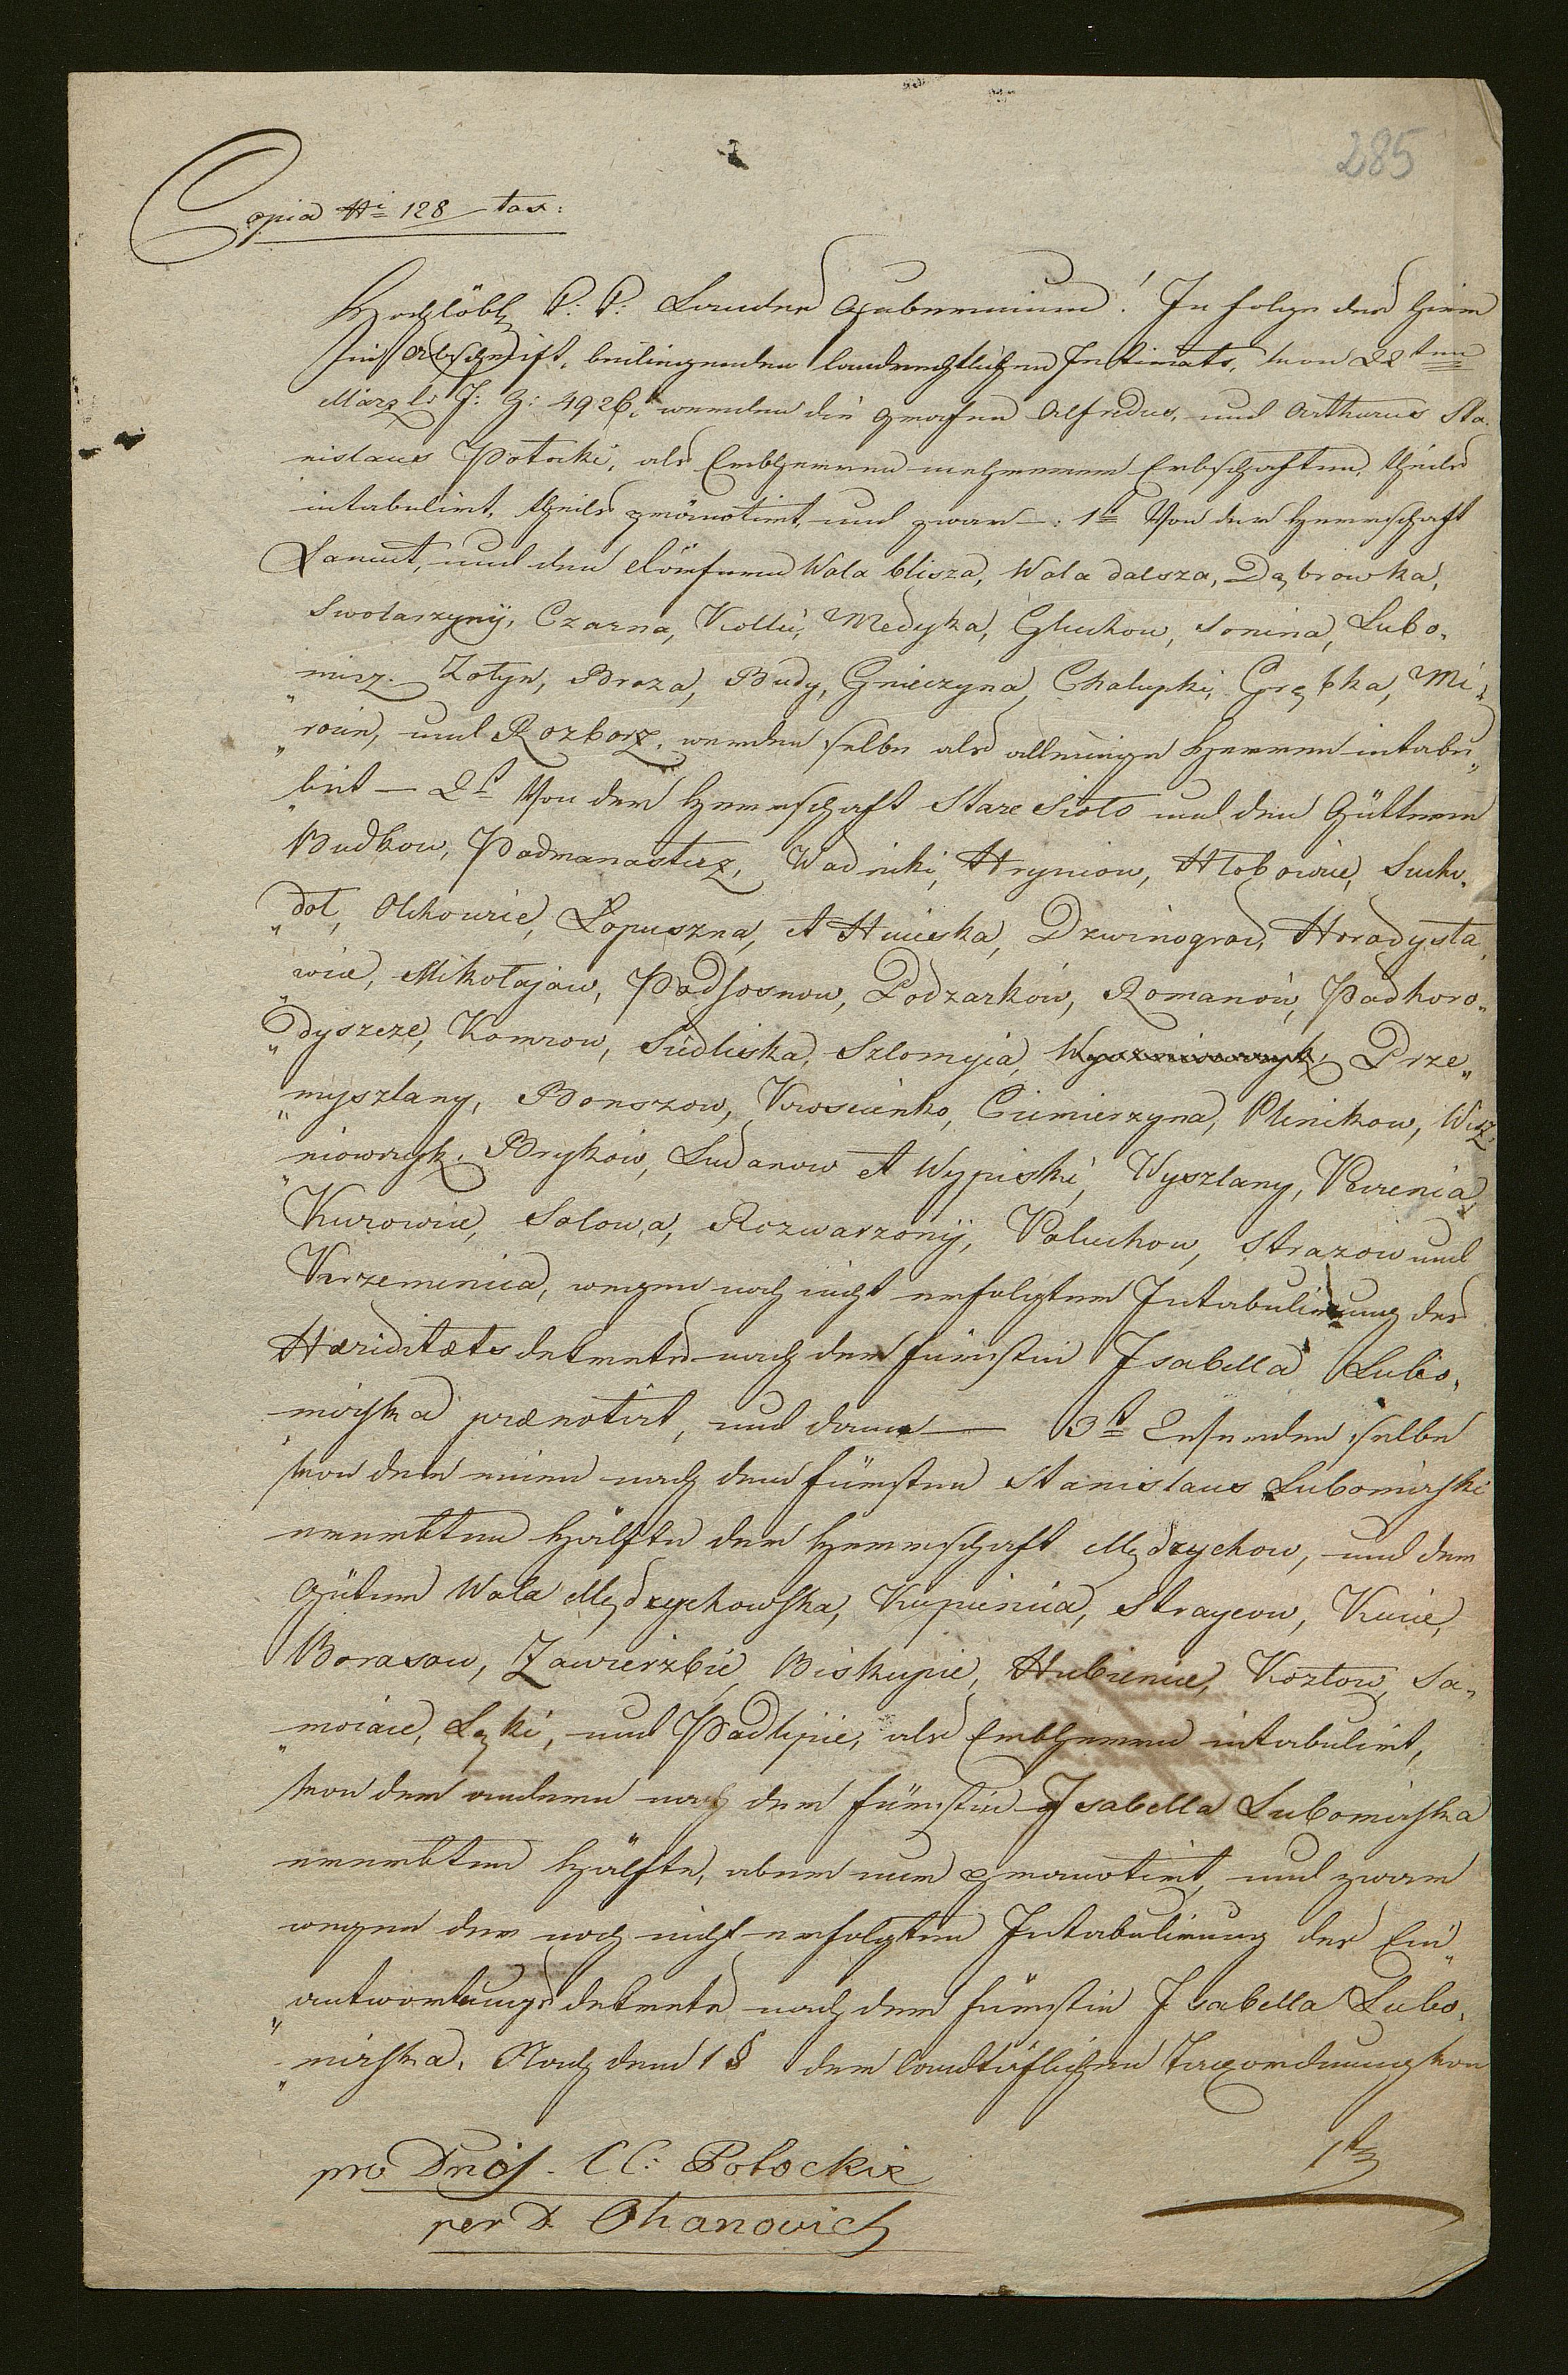 285
Copia Ni 128 tax:
Hochlöbl. k: k: Landes Gubernium! In folge des hier
in Abschrift beiliegenden landrechtlichen Intimats, von 22ten
März l: J: Z: 4926, werden die Grafen Alfredus, und Arthurus Sta-
nislaus Potocki, als Erbherren mehrerer Erbschaften, theils
intabulirt, theils pränotirt, und zwar —: 1s Von der Herrschaft
Lancut, und den Dörfern Wola blisza, Wola dalsza, Dąbrowka,
Smolarzyny, Czarna, Medyka, Gluchow, Sonina, Lubo-
misz. Zolyn, Broza, Budy, Gnieczyna, Chalupki, Grębka, Mi-
rocin, und Rozborz, werden selbe als alleinige Herren intabu-
lirt — 2s Von der Herrschaft Stare Siolo und den Güttern
Budkow, Podmanasterz, Wodniki, Hryniow, Hlobowice, Sucho-
dol, Olchowice, Lopuszna, et Hucisko, Dzwinogrod, Horodysla-
wice, Mikolajow, Podsosnow, Podzarkow, Romanow, Podhoro-
dyszcze, Komrow, Siedliska, Szlomyia, Prze-
myszlany, Bonszow, Krosienko, Ciemierzyna, Plenikow, Wisz-
niowczyk, Brykow, Ludanow et Wypiski, Wyszlany,
Kurowice, Solowa, Rozwarzony, Poluchow, Strazow und
Krzemienica, wegen noch nicht erfolgter Intabulirung des
Hæriditætsdekrets nach der Fürstin Isabella Lubo-
mirska prænotirt, und dann — 3s werden selbe
von der einen nach dem Fürsten Stanislaus Lubomirski
ererbten Hälfte der Herrschaft Mędrzychow, und der
Gütern Wola Mędrzychowska, Kupienica, Straycow, Kuice,
Borasow, Zawierzbie, Biskupie, Hubienice, Kozlow, Sa-
moiaie, Lęki, und Podlipie, als Erbherren intabulirt,
von der andern nach der Fürstin Isabella Lubomirska
ererbten Hälfte, aber nur prænotirt, und zwar
wegen der noch nicht erfolgten Intabulirung des Ein-
antwortungsdekrets nach der Fürstin Isabella Lubo-
mirska. Nach dem 1 § der landtäflichen Taxordnung von
1ten
pro Dnis. CC: Potockie
per D. Ohanowich